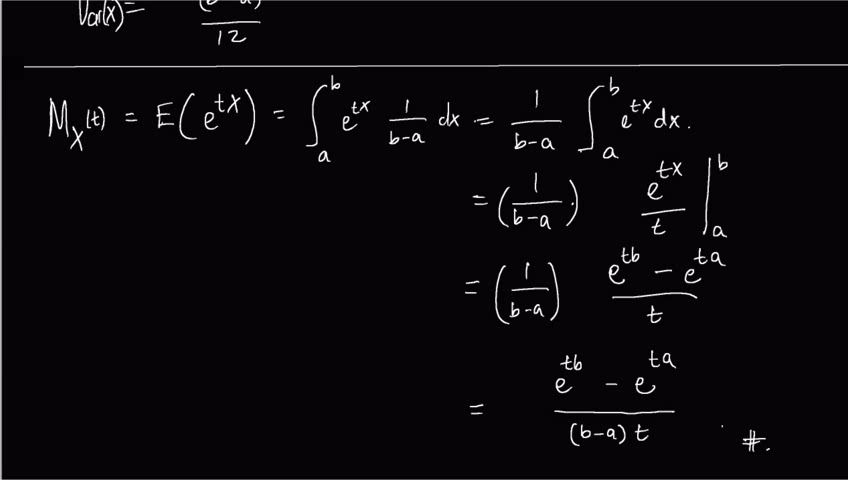 Var(X) = (b-a)² / 12
M_X(t) = E(e^{tX}) = ∫_a^b e^{tx} 1/(b-a) dx = 1/(b-a) ∫_a^b e^{tx} dx.
= (1/(b-a)) · e^{tx}/t |_a^b
= (1/(b-a)) (e^{tb} - e^{ta})/t
= (e^{tb} - e^{ta})/((b-a) t) #.